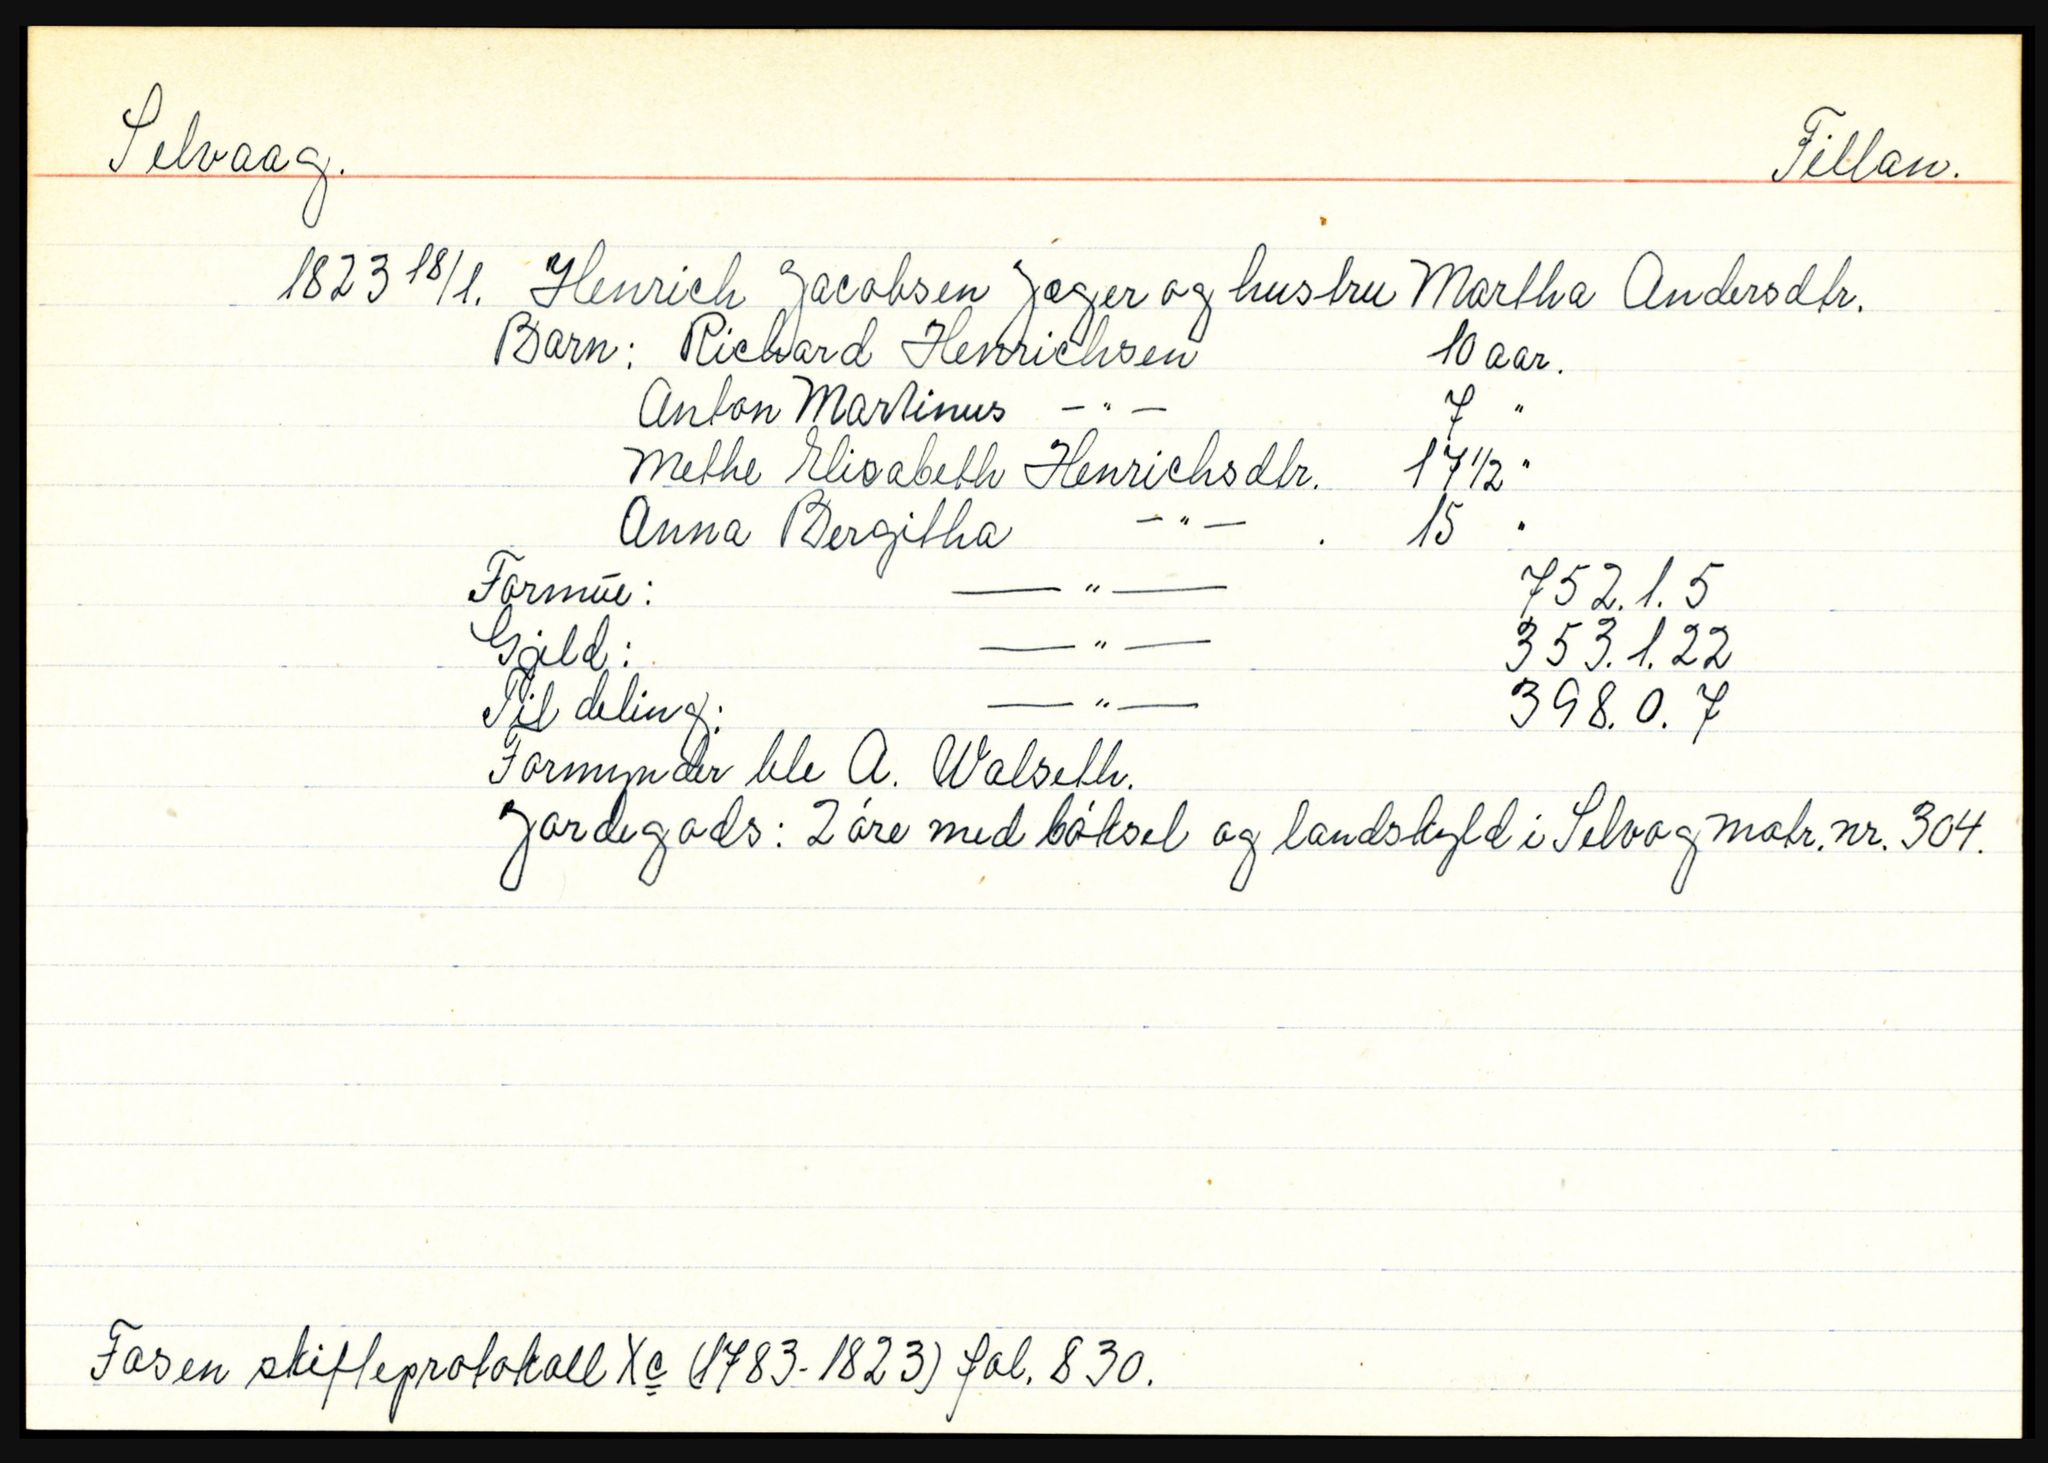 Selvaag.
Fillan.
1823 18/1. Henrich Jacobsen Jæger og hustru Martha Andersdtr.
Barn: Richard Henrichsen 10 aar.
Anton Martinus —"— 7 "
Methe Elisabeth Henrichsdtr. 17 1/2 "
Anna Bergitha —"— . 15 "
Formue: —"— 752.1.5
Gjeld: —"— 353.1.22
Til deling: —"— 398.0.7
Formynder ble A. Walseth.
Jordegods: 2 öre med böksel og landskyld i Selvog matr. nr. 304.
Fosen skifteprotokoll Xc (1783-1823) fol. 830.